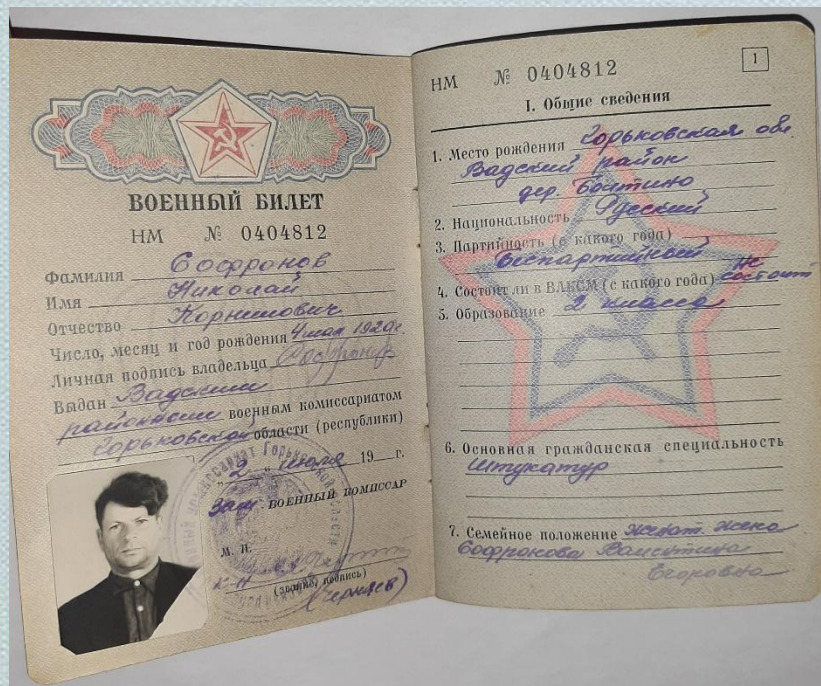 ВОЕННЫЙ БИЛЕТ
НМ № 0404812
Фамилия Софронов
Имя Николай
Отчество Корнилович
Число, месяц и год рождения 4 мая 1920г.
Личная подпись владельца Софронов
Выдан Вадским
районным военным комиссариатом
Горьковской области (республики)
„2„ июля 19 г.
Зам. ВОЕННЫЙ КОМИССАР
М. П.
к-н
(звание, подпись)
(Черняев)
НМ № 0404812
1
I. Общие сведения
1. Место рождения Горьковская обл
Вадский район
дер. Болтино
2. Национальность Русский
3. Партийность (с какого года)
Беспартийный
4. Состоит ли в ВЛКСМ (с какого года) не
состоит
5. Образование 2 класса
6. Основная гражданская специальность
штукатур
7. Семейное положение женат. жена
Софронова Валентина
Егоровна